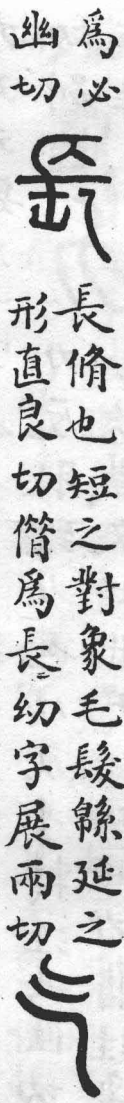 爲必
幽切
長脩也短之對象毛髮緜延之
形直良切僣爲長〻幼字展兩切